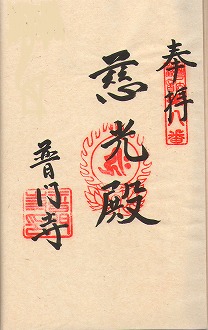 奉拝
慈光殿
普門寺